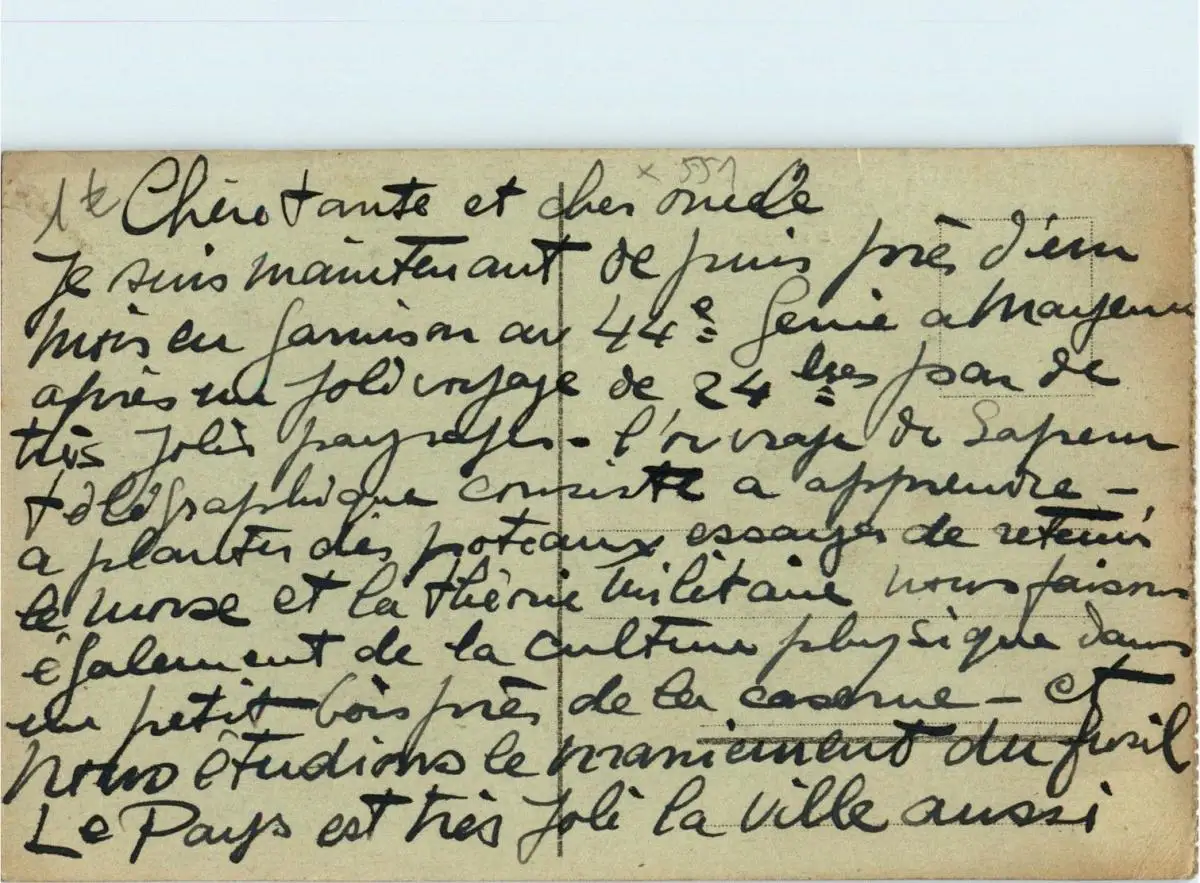 x 551
1k Chère tante et cher oncle
Je suis maintenant depuis près d'un
mois en garnison au 44e Génie a Mayenne
après un joli voyage de 24 hres par de
très jolis paysages - l'ouvrage de Sapeur
télégraphique consiste a apprendre -
a planter des poteaux essayer de retenir
le morse et la théorie militaire nous faisons
également de la culture physique dans
un petit bois près de la caserne - et
nous étudions le maniement du fusil
Le Pays est très joli la ville aussi